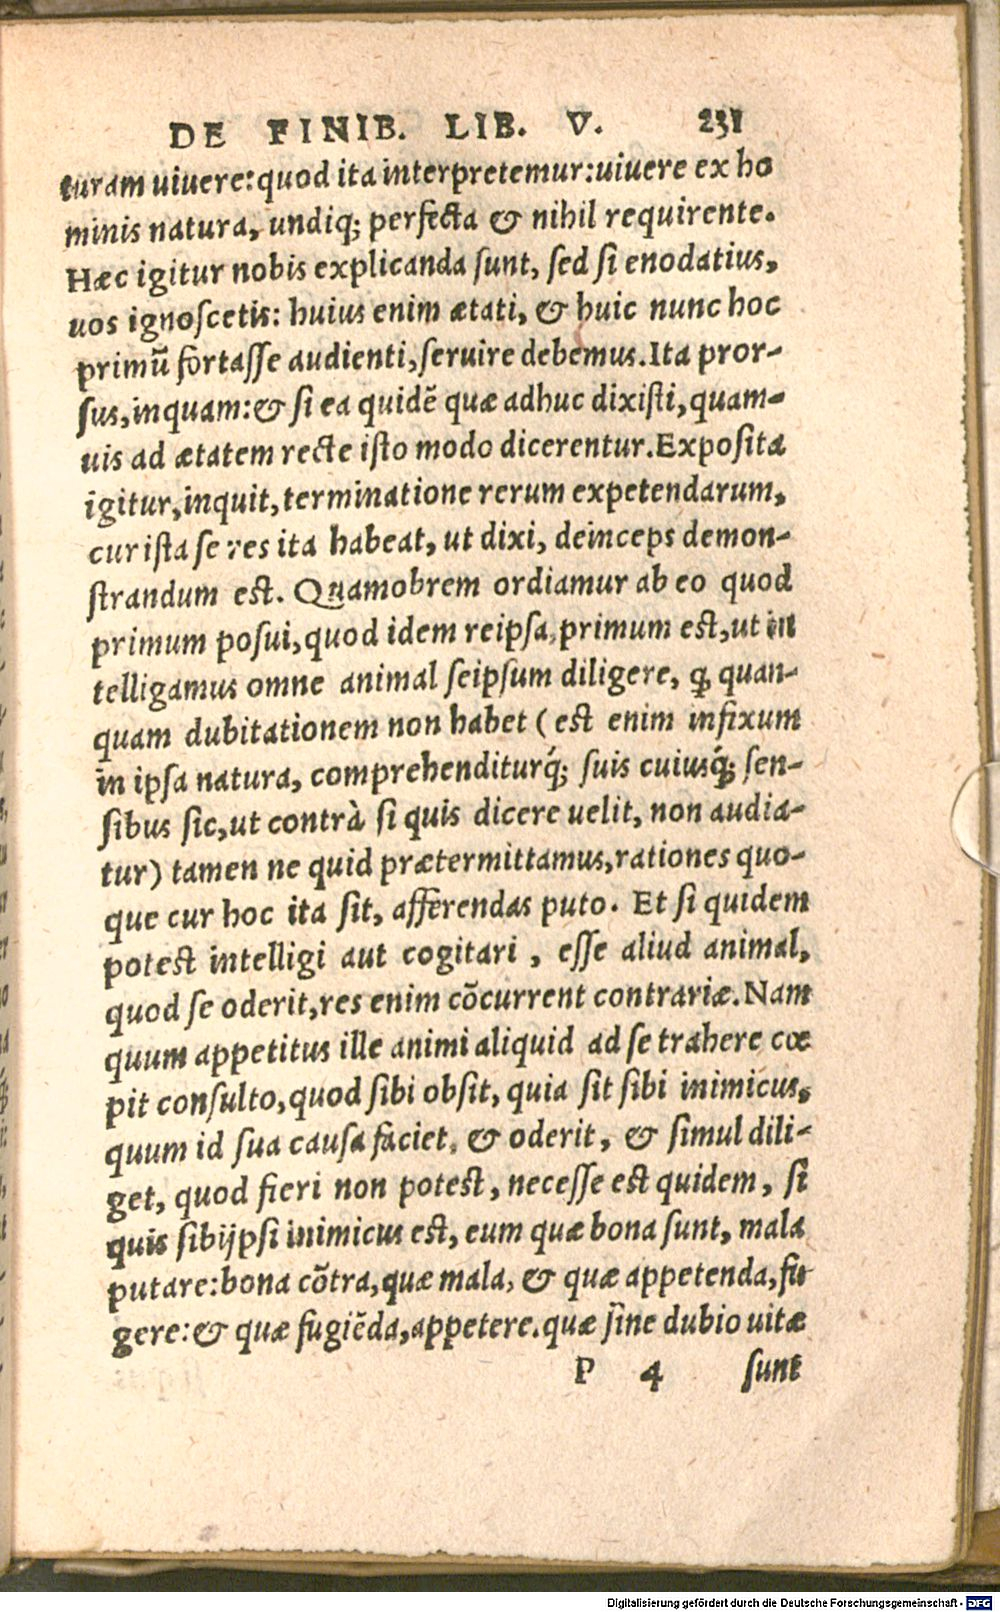 DE FINIB. LIB. V. 231
turam uiuere: quod ita interpretemur: uiuere ex ho
minis natura, undiq; perfecta & nihil requirente.
Hæc igitur nobis explicanda sunt, sed si enodatius,
uos ignoscetis: huius enim ætati, & huic nunc hoc
primũ fortasse audienti, seruire debemus. Ita pror-
sus, inquam: & si ea quidẽ quæ adhuc dixisti, quam-
uis ad ætatem recte isto modo dicerentur. Exposita
igitur, inquit, terminatione rerum expetendarum,
cur ista se res ita habeat, ut dixi, deinceps demon-
strandum est. Quamobrem ordiamur ab eo quod
primum posui, quod idem reipsa, primum est, ut in
telligamus omne animal seipsum diligere, ꝙ quan-
quam dubitationem non habet (est enim infixum
in ipsa natura, comprehenditurq́; suis cuiusq́; sen-
sibus sic, ut contrà si quis dicere uelit, non audia-
tur) tamen ne quid prætermittamus, rationes quo-
que cur hoc ita sit, afferendas puto. Et si quidem
potest intelligi aut cogitari, esse aliud animal,
quod se oderit, res enim cõcurrent contrariæ. Nam
quum appetitus ille animi aliquid ad se trahere cœ
pit consulto, quod sibi obsit, quia sit sibi inimicus,
quum id sua causa faciet, & oderit, & simul dili-
get, quod fieri non potest, necesse est quidem, si
quis sibijpsi inimicus est, eum quæ bona sunt, mala
putare: bona cõtra, quæ mala, & quæ appetenda, fu
gere: & quæ fugiẽda, appetere. quæ sine dubio uitæ
P 4 sunt
Digitalisierung gefördert durch die Deutsche Forschungsgemeinschaft - DFG